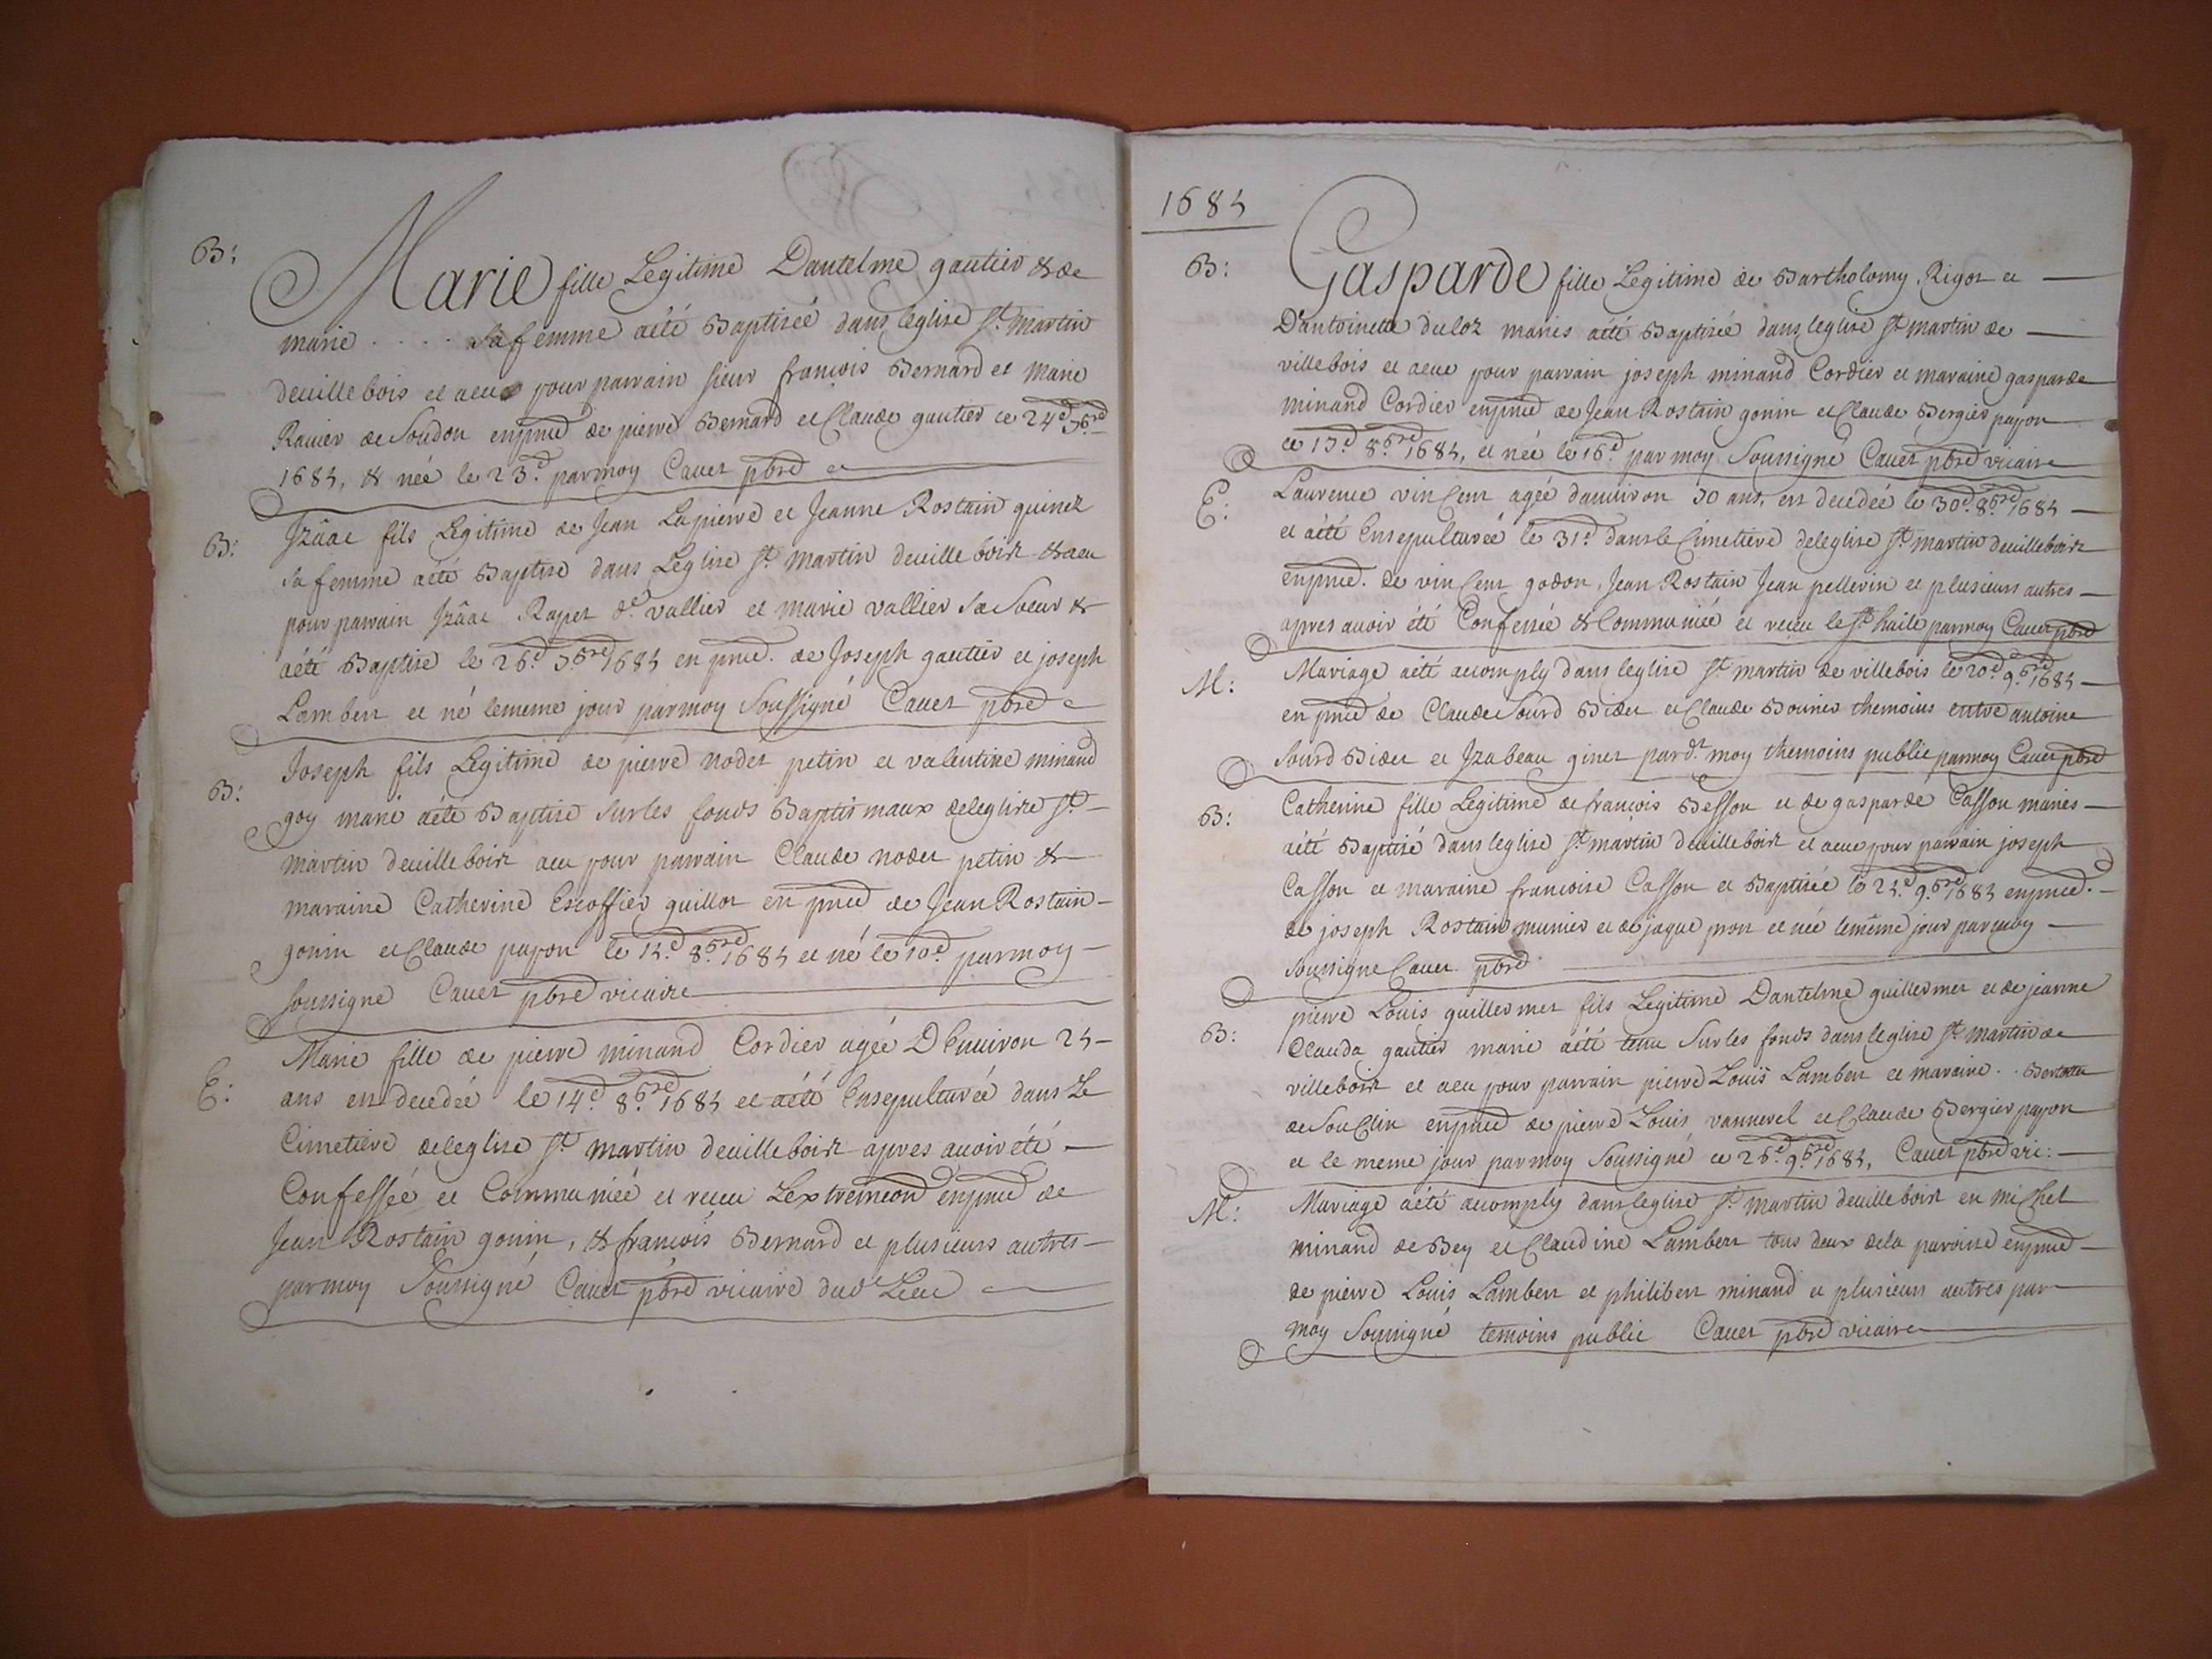 B:
Marie fille Legitime Dantelme gautier & de
marie .... sa femme aété Baptiseé dans leglise St. Martin
deuillebois et aeu pour parrain sieur francois Bernard et Marie
Ravier de Soudon enpnce de pierre Bernard et Claude gautier ce 24e 7bre
1685, & née le 23e. parmoy Cauet pbre
B:
Jzâac fils Legitime de Jean Lapierre et Jeanne Rostain quinet
sa femme aété Baptise dans Leglise St. Martin deuille boix & aeu
pour parrain Jzâac Rapet de. vallier et marie vallier Sa Soeur &
aété Baptise le 26e 7bre 1685 en pnce. de Joseph gautier et joseph
Lambert et né lememe jour parmoy Soussigné Cauet pbre
B:
Joseph fils Legitime de pierre nodet petin et valentine minand
goy marié aété Baptise Surles fonds Baptismaux deleglise St
Martin deuilleboix aeu pour parrain Claude nodet petin &
maraine Catherine Escoffier guillot en pnce de Jean Rostain
gonin et Claude payon le 15e. 8bre 1685 et né le 10e parmoy
soussigne Cauet pbre vicaire
E:
Marie fille de pierre minand Cordier agée D'Enuiron 25
ans est decedée le 14e. 8bre 1685 et aété Ensepulturée dans Le
Cimetiere deleglise St. Martin deuilleboix apres auoir été
Confessée et Communiée et receu Lextremeon enpnce de
Jean Rostain gonin, & francois Bernard et plusieurs autres
parmoy Soussigné Cauet pbre vicaire dud Lieu
1685
B:
Gasparde fille Legitime de Bartholomy Rigot et
D'antoinette duloz mariés aété Baptisée dans leglise St martin de
villebois et aeue pour parrain joseph minand Cordier et maraine gasparde
minand Cordier enpnce de Jean Rostain gonin et Claude Bergier payon
ce 17e 8bre 1685, et née le 16e. par moy Soussigné Cauet pbre vicaire
E:
Laurence vincent ageé danuiron 50 ans, est decedeé le 30e. 8bre 1685
et aété Ensepultureé le 31e dansle Cimetiere deleglise St martin deuilleboix
enpnce. de vincent godon, Jean Rostain Jean pellerin et plusieurs autres
apres auoir été Confessée & Communiée et receu le St huile parmoy Cauet pbre
M:
Mariage aété accomply dans leglise St martin de villebois le 20e 9bre 1685
en pnce de Claude Sourd Bidet et Claude Bouvier themoins entre antoine
Sourd Bidet et Jzabeau ginet pardt moy themoins public parmoy Cauet pbre
B:
Catherine fille Legitime de francois Besson et de gasparde Casson mariés
aété Baptisé dans leglise St martin deuilleboix et aeue pour parrain joseph
Casson et maraine francoise Casson et Baptisée le 25e 9bre 1685 enpnce.
de joseph Rostain munier et de jaque pron et née lemême jour parmoy
soussigne Cauet pbre
B:
pierre Louis guillermet fils Legitime Dantelme guillermet et de jeanne
Clauda gautier marié aété tenu Surles fonds dans leglise St martin de
villeboix et aeu pour parrain pierre Louis Lambert et maraine .. Bertetta
de Souclin enpnce de pierre Louis vannerel et Claude Bergier payon
et le meme jour parmoy Soussigné ce 26e. 9bre 1685, Cauet pbre vic:
M:
Mariage aété accomply dans leglise St. martin deuilleboix en michel
minand de Bey et Claudine Lambert tous deux dela paroise enpnce
de pierre Louis Lambert et philibert minand et plusieurs autres par
moy Soussigné temoins public Cauet pbre vicaire